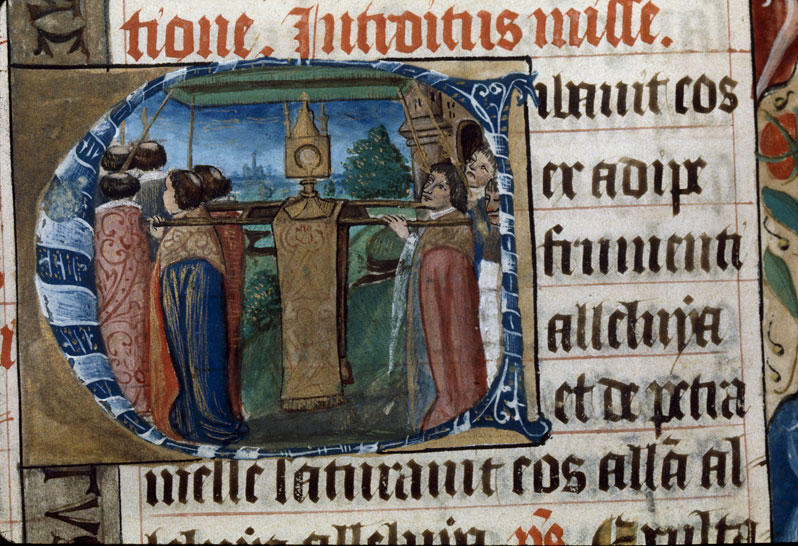 tione. Introitus misse.
Cibavit eos
ex adipe
frumenti
alleluya
et de petra
melle saturavit eos alla al
leluya alleluya ps Exulta